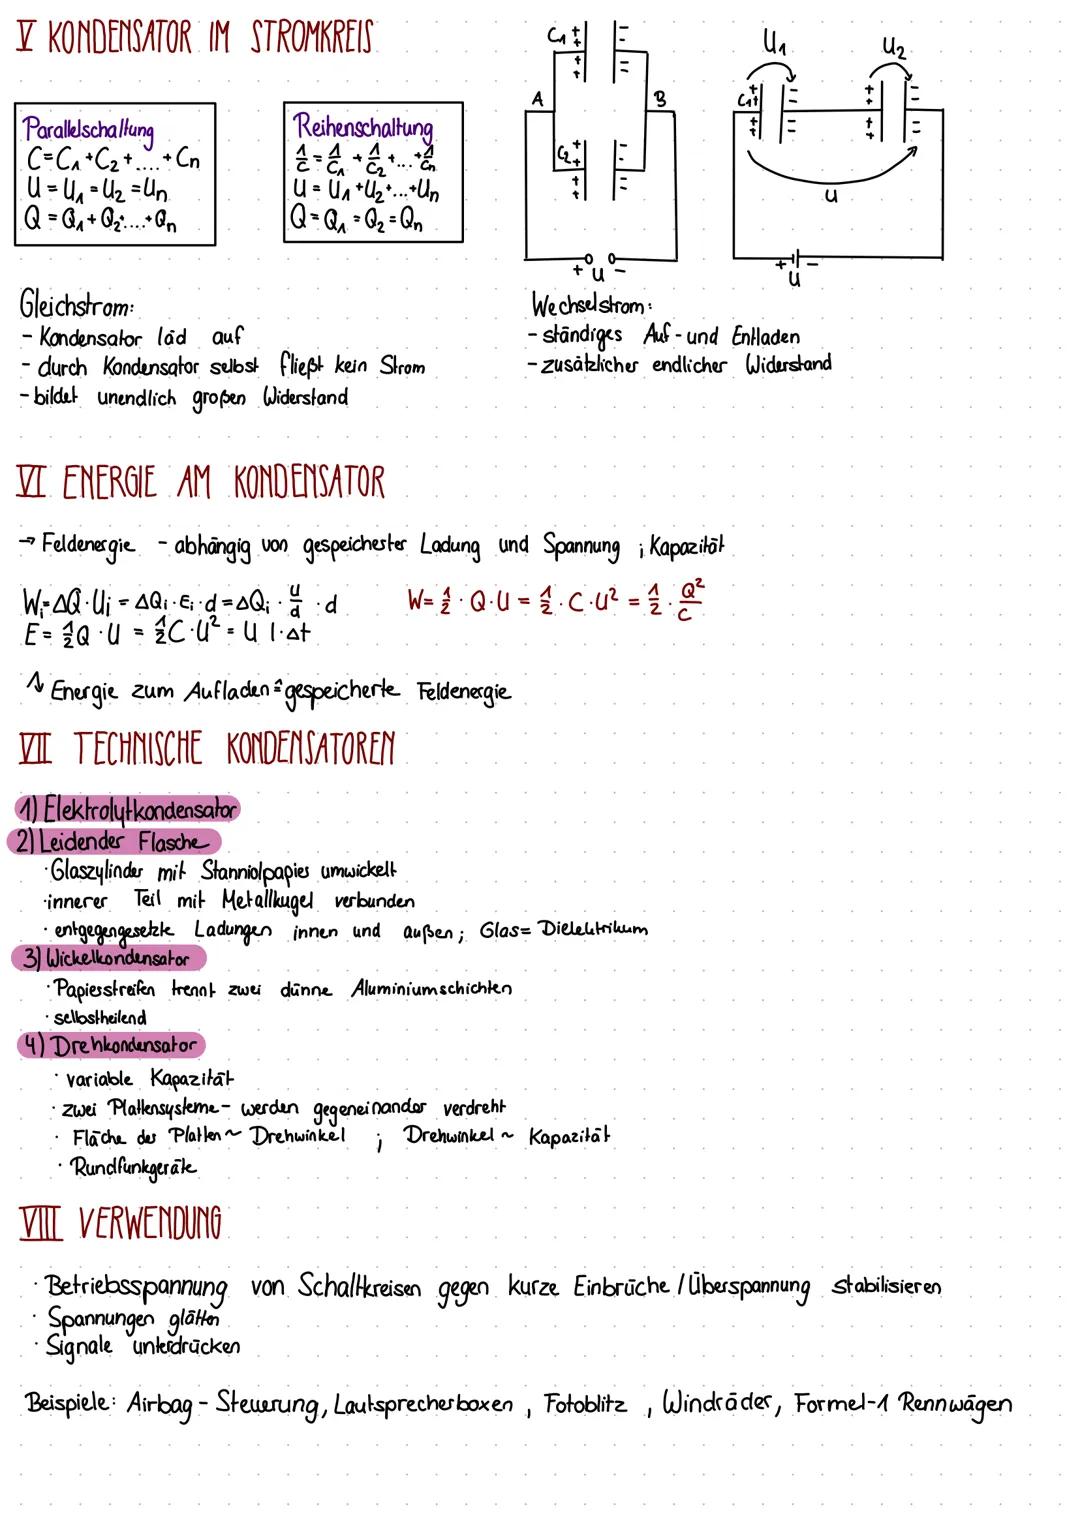 V KONDENSATOR IM STROMKREIS
Parallelschaltung
C = C₁ + C₂ + .... + Cn
U = U₁ = U₂ = Un
Q = Q₁ + Q₂+....+Qn
Reihenschaltung
1/C = 1/C₁ + 1/C₂ +...+ 1/Cn
U = U₁ + U₂+...+Un
Q = Q₁ = Q₂ = Qn
C₁ + + + +
A B
C₂ + + + +
+ U -
U₁ U₂
C₁
U
+ -
U
Gleichstrom:
- Kondensator läd auf
- durch Kondensator selbst fließt kein Strom
- bildet unendlich großen Widerstand
Wechselstrom:
- ständiges Auf- und Entladen
- zusätzlicher endlicher Widerstand
VI ENERGIE AM KONDENSATOR
→ Feldenergie - abhängig von gespeicherter Ladung und Spannung ; Kapazität
Wi = ΔQ · Ui = ΔQi · Ei · d = ΔQi · U/d · d
E = 1/2 Q · U = 1/2 C · U² = U I · Δt
W = 1/2 · Q · U = 1/2 · C · U² = 1/2 · Q²/C
Energie zum Aufladen ≙ gespeicherte Feldenergie
VII TECHNISCHE KONDENSATOREN
1) Elektrolytkondensator
2) Leidender Flasche
· Glaszylinder mit Stanniolpapier umwickelt
· innerer Teil mit Metallkugel verbunden
· entgegengesetzte Ladungen innen und außen; Glas = Dielektrikum
3) Wickelkondensator
· Papierstreifen trennt zwei dünne Aluminiumschichten
· selbstheilend
4) Drehkondensator
· variable Kapazität
· zwei Plattensysteme - werden gegeneinander verdreht
· Fläche der Platten ~ Drehwinkel ; Drehwinkel ~ Kapazität
· Rundfunkgeräte
VIII VERWENDUNG
· Betriebsspannung von Schaltkreisen gegen kurze Einbrüche / Überspannung stabilisieren
· Spannungen glätten
· Signale unterdrücken
Beispiele: Airbag - Steuerung, Lautsprecherboxen, Fotoblitz, Windräder, Formel-1 Rennwägen